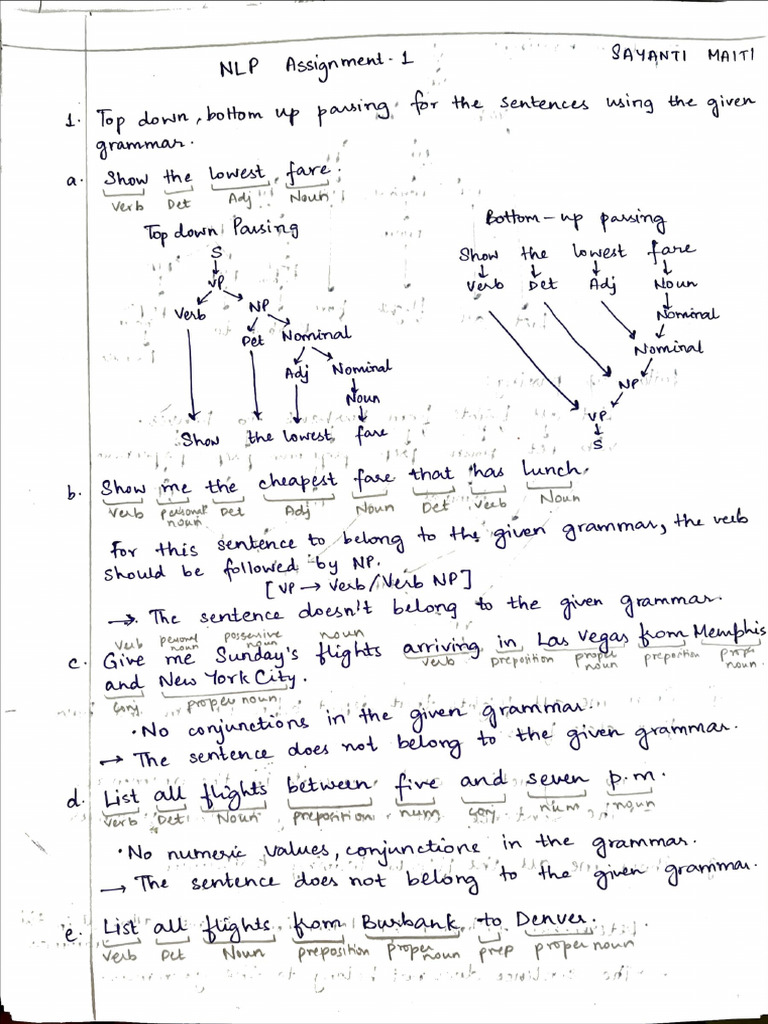 NLP Assignment-1
SAYANTI MAITI
1. Top down, bottom up parsing for the sentences using the given
grammar.
a. Show the lowest fare.
Verb Det Adj Noun
Top down Parsing
S
VP
Verb NP
Det Nominal
Adj Nominal
Noun
Show the lowest fare
Bottom-up parsing
Show the lowest fare
Verb Det Adj Noun
Nominal
Nominal
NP
VP
S
b. Show me the cheapest fare that has lunch.
Verb personal noun Det Adj Noun Det Verb Noun
For this sentence to belong to the given grammar, the verb
should be followed by NP.
[VP → Verb/Verb NP]
→ The sentence doesn't belong to the given grammar.
verb personal noun possessive noun noun
c. Give me Sunday's flights arriving in Las Vegas from Memphis
verb preposition proper noun preposition proper noun
and New York City.
conj proper noun
• No conjunctions in the given grammar.
→ The sentence does not belong to the given grammar.
d. List all flights between five and seven p.m.
Verb Det Noun preposition num conj num noun
• No numeric values, conjunctione in the grammar.
→ The sentence does not belong to the given grammar.
e. List all flights from Burbank to Denver.
Verb Det Noun preposition proper noun prep proper noun